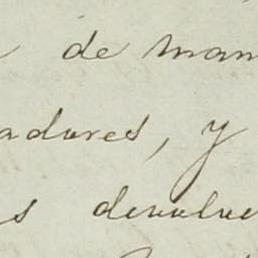 de man
adures, y
s devolve